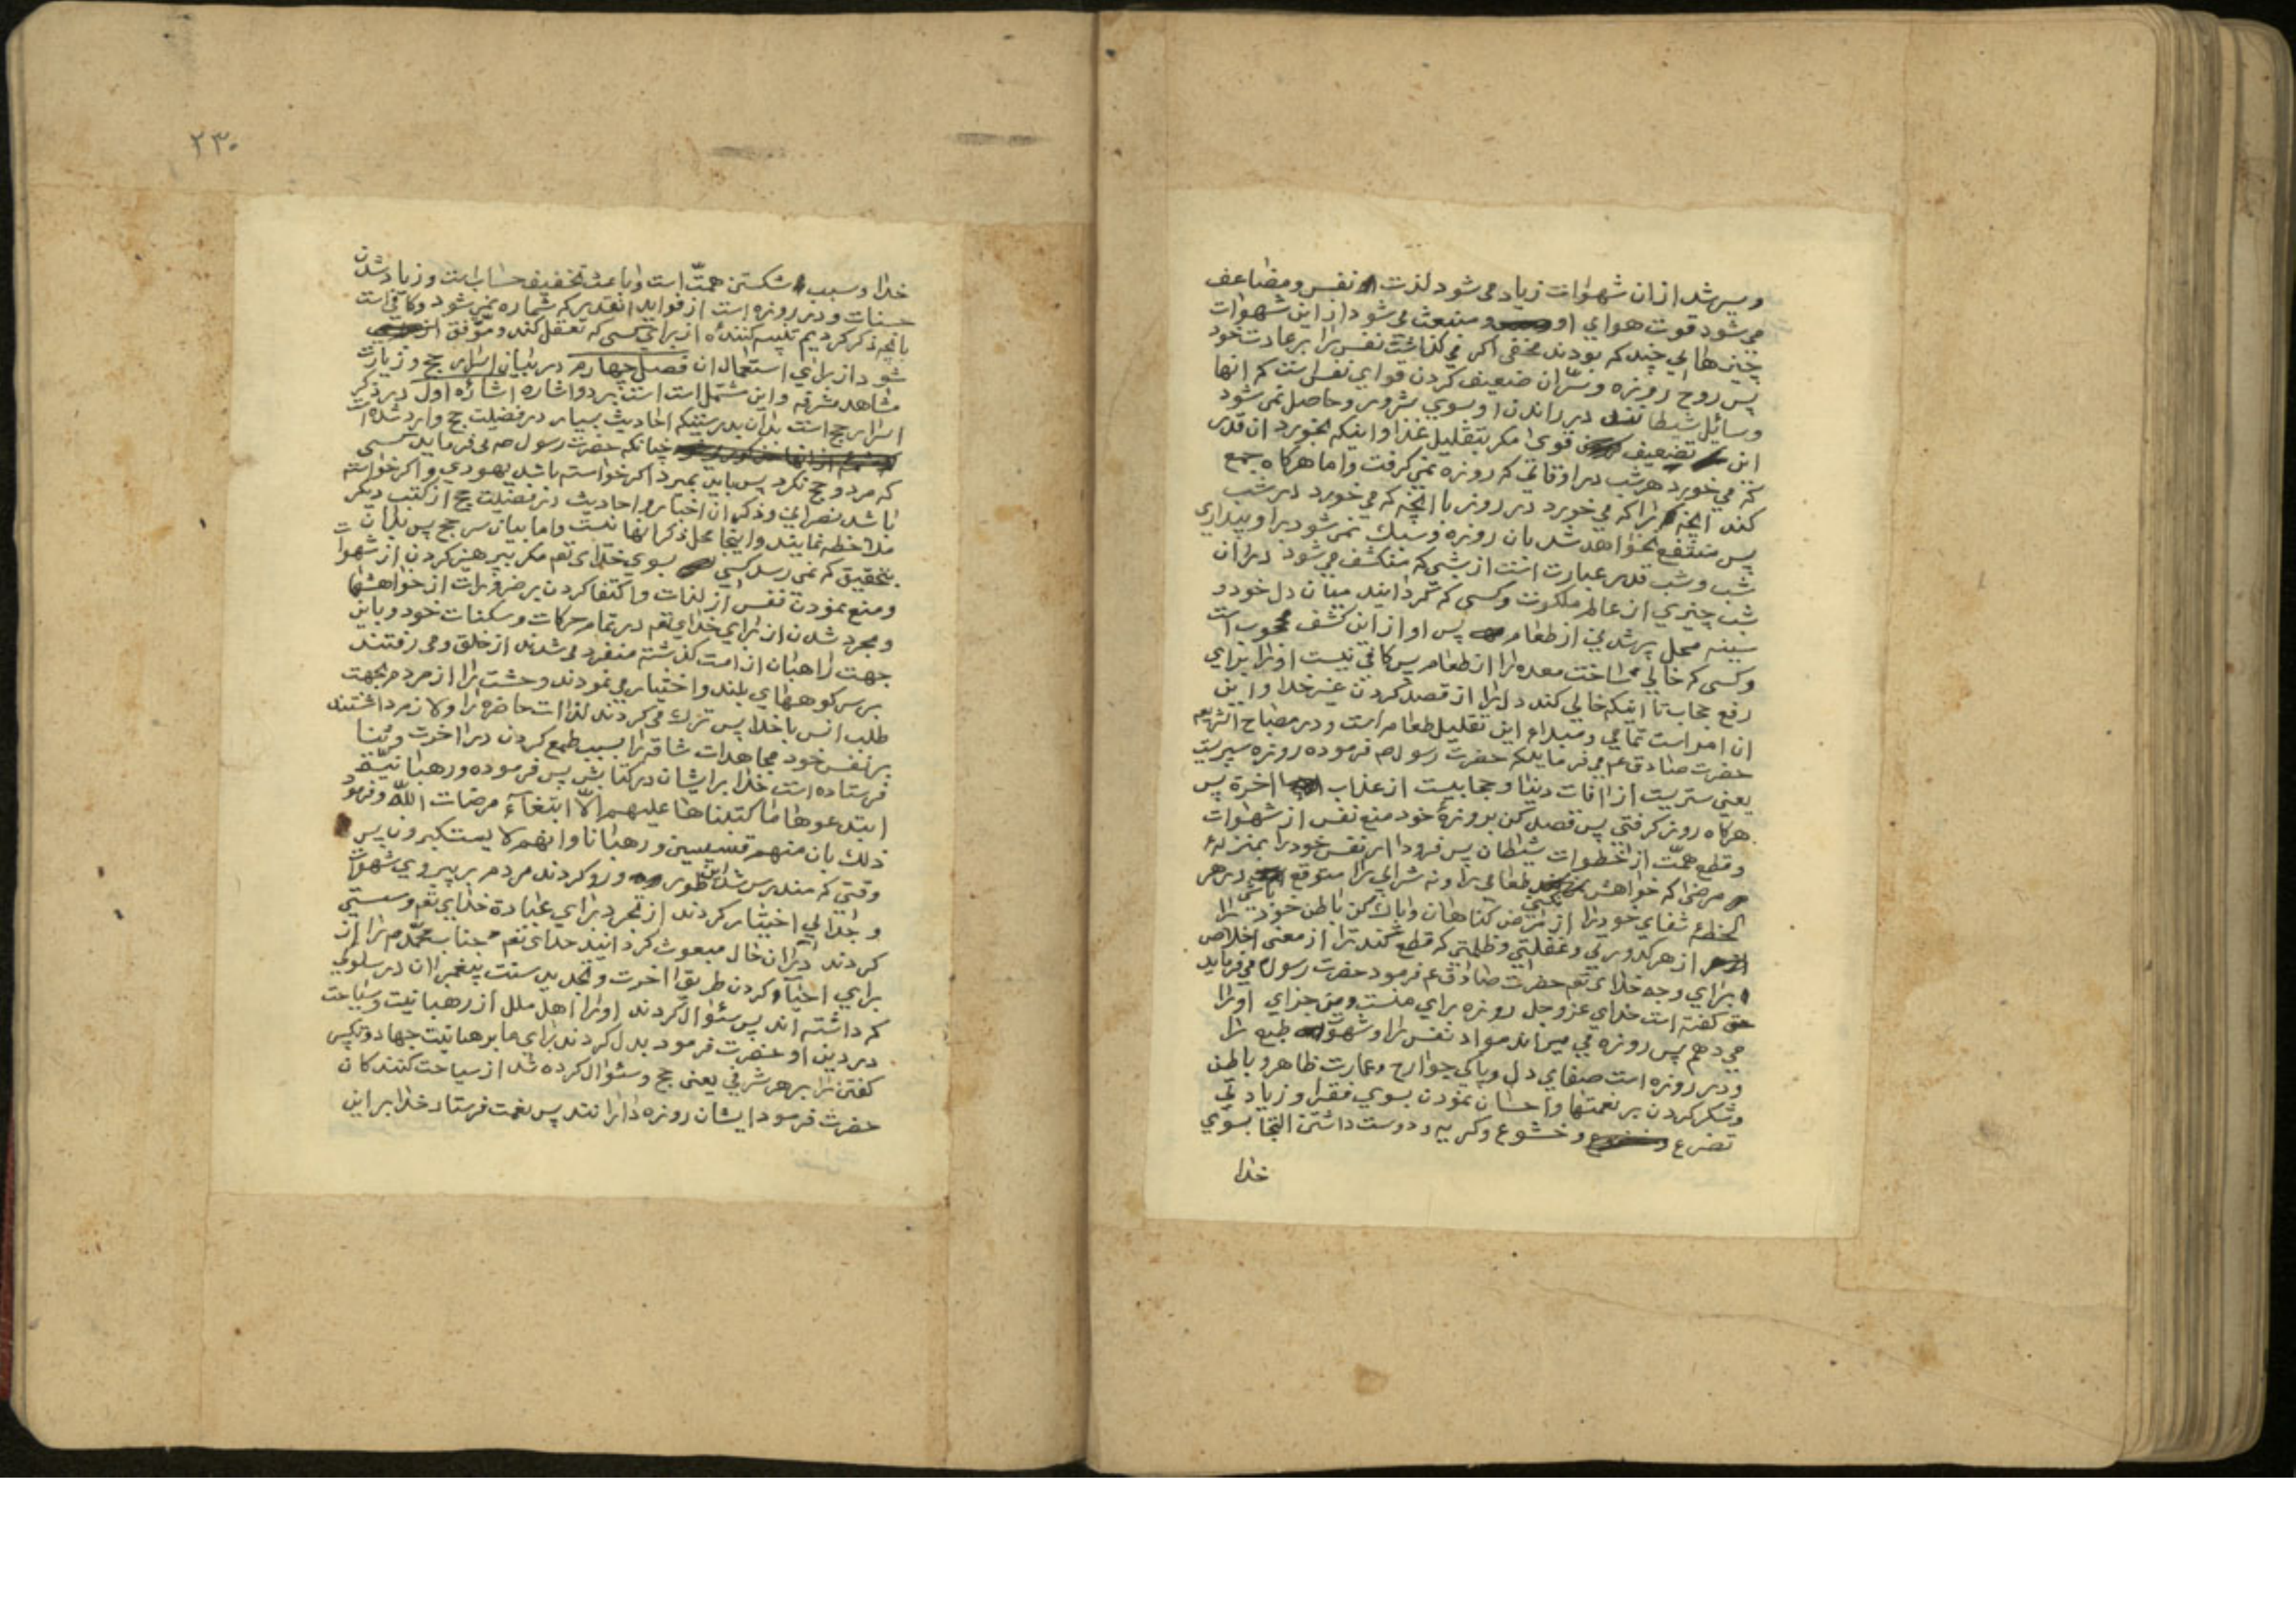 و سیر شد از ان شهوات زیاد می شود لذت نفس و مضاعف
می شود قوت هوای او و منبعث می شود از این شهوات
چیزهائی چند که بودند مخفی اکر می کذاشت نفس را بر عادت خود
پس روح روزه و سرّ ان ضعیف کردن قوای نفس است که انها
وسائل شیطانند در راندن او بسوی شرور و حاصل نمی شود
این تضعیف قوی مکر بتقلیل غذا و اینکه بخورد ان قدر
که می خورد هر شب در اوقاتی که روزه نمی کرفت و اما هرکاه جمع
کند انچه را که می خورد در روز با انچه که می خورد در شب
پس منتفع نخواهد شد بان روزه و سبک نمی شود بر او بیداری
شب و شب قدر عبارت است از شبی که منکشف می شود در ان
شب چیزی از عالم ملکوت و کسی که کرداند میان دل خود و
سینه محل پرشدنی از طعام پس او از این کشف محجوب است
و کسی که خالی ساخت معده را از طعام پس کافی نیست او را برای
رفع حجاب تا اینکه خالی کند دل را از قصد کردن غیر خدا و این
ان امر است تمامی و مبداء این تقلیل طعام است و در مصباح الشریعه
حضرت صادق ع می فرماید که حضرت رسول ص فرموده روزه سپریست
یعنی ستریست از افات دنیا و حجابیست از عذاب اخرة پس
هرکاه روزه کرفتی پس قصد کن بروزهٔ خود منع نفس از شهوات
و قطع همّت از خطوات شیطان پس فرود ار نفس خود را بمنزلهٔ
مرضی که خواهش نکنی طعامی را و نه شرابی را متوقع باشی در هر
لحظه شفای خود را از مرض کناهان و پاک کن باطن خود را
از هر کدورتی و غفلتی و ظلمتی که قطع کند ترا از معنی اخلاص
برای وجه خدای تعم حضرت صادق ع فرمود حضرت رسول ص می فرماید
که کفته است خدای عز و جل روزه برای منست و من جزای او را
می دهم پس روزه می میراند مواد نفس را و شهوت طبع را
و در روزه است صفای دل و پاکی جوارح و عمارت ظاهر و باطن
و شکر کردن بر نعمتها و احسان نمودن بسوی فقرا و زیادتی
تضرع و خشوع و کریه و دوست داشتن التجا بسوی
خدا
۲۳۰
خدا و سبب شکستن همّت است و باعث تخفیف حساب است و زیاد شدن
حسنات و در روزه است از فواید انقدر که شماره نمی شود و کافی است
بانچه ذکر کردیم تنبیه کننده از برای کسی که تعقل کند و موفق
شود از برای استعمال ان فصل چهارم در بیان اسرار حج و زیارت
مشاهد مشرفه و این مشتمل است بر دو اشاره اشاره اول در ذکر
اسرار حج است بدان بدرستیکه احادیث بسیار در فضیلت حج وارد شده است
چنانکه حضرت رسول ص می فرماید کسی
که مرد و حج نکرد پس باید بمیرد اکر خواسته باشد یهودی و اکر خواسته
باشد نصرانی و ذکر ان اخبار و احادیث در فضیلت حج از کتب دیکر
ملاحظه نمایند و اینجا محل ذکر انها نیست و اما بیان سر حج پس بدان
بتحقیق که نمی رسد کسی بسوی خدای تعم مکر بپرهیز کردن از شهوات
و منع نمودن نفس از لذات و اکتفا کردن بر ضرورات از خواهشها
و مجرد شدن از برای خدای تعم در تمام حرکات و سکنات خود و باین
جهت راهبان از امت کذشته منفرد می شدند از خلق و می رفتند
بر سر کوههای بلند و اختیار می نمودند وحشت را از مردم بجهت
طلب انس با خدا پس ترک می کردند لذات حاضره را و لازم داشتند
بر نفس خود مجاهدات شاقه را بسبب طمع کردن در اخرت و ثنا
فرستاده است خدا بر ایشان در کتابش پس فرموده و رهبانیة
ابتدعوها ما کتبناها علیهم الّا ابتغاء مرضات اللّه و فرمود
ذلک بان منهم قسیسین و رهبانا و انهم لا یستکبرون پس
وقتی که مندرس شد این طور و رو کردند مردم بر پیروی شهوات
و جدائی اختیار کردند از تجرد برای عبادة خدای تعم و سستی
کردند در ان حال مبعوث کردانید خدای تعم جناب محمّد ص را از
برای احیاء کردن طریق اخرت و تجدید سنت پیغمبران در سلوکی
که داشته اند پس سئوال کردند او را اهل ملل از رهبانیت و سیاحت
در دین او حضرت فرمود بدل کردند برای ما برهبانیت جهاد و تکبیر
کفتن را بر هر شرفی یعنی حج و سئوال کرده شد از سیاحت کنندکان
حضرت فرمود ایشان روزه دارانند پس نعمت فرستاد خدا بر این